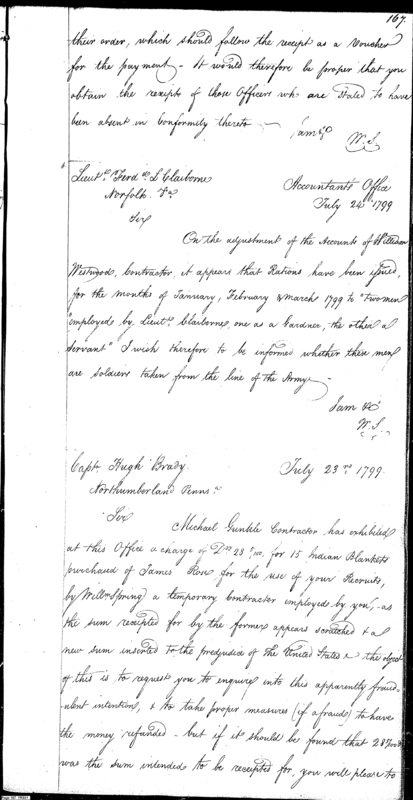 167.
their order, which should follow the receipt as a Voucher
for the payment - It would therefore be proper that you
obtain the receipts of those Officers who are Stated to have
been absent in Conformity thereto -
I am &c
W. S.
Lieut. Ferd. L. Claiborne
Norfolk Va
Accountants Office
July 24th 1799
Sir
On the adjustment of the Accounts of William
Westwood, Contractor, it appears that Rations have been issued,
for the months of January, February & March 1799 to "two men
"employed by Lieut. Claiborne, one as a Gardner, the other a
Servant" I wish therefore to be informed whether these men
are soldiers taken from the line of the Army -
I am &c
W. S.
Capt. Hugh Brady
July 23rd 1799.
Northumberland Penns.a
Sir
Michael Gunkle Contractor has exhibited
at this Office a charge of for 15 Indian Blankets
purchased of James for the use of your Recruits,
by Willm Spring a temporary Contractor employed by you, - as
the sum receipted for by the former appears scratched & a
new sum inserted to the prejudice of The United States the object
of this is to request you to enquire into this apparently fraud-
ulent intention, & to take proper measures (if a fraud) to have
the money refunded - but if it should be found that 28
was the sum intended to be receipted for, you will please to